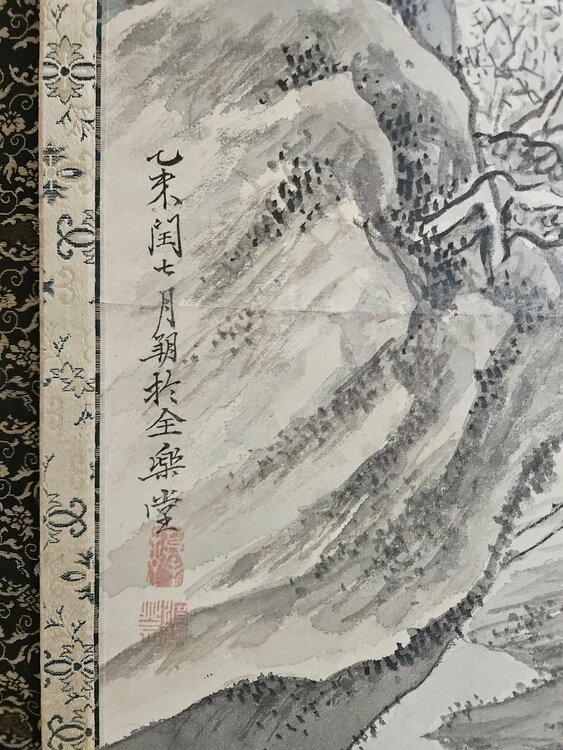 乙未閏七月朔於全樂堂